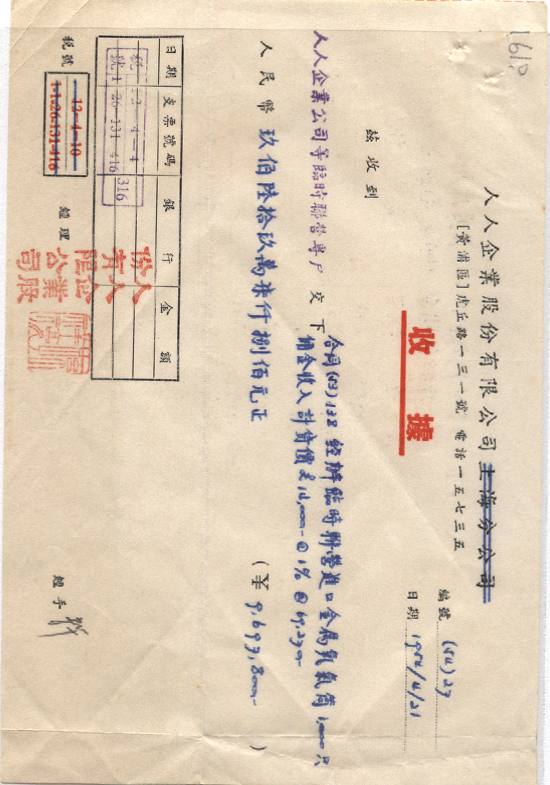 1610
人人企業股份有限公司上海分公司
[黃浦區]虎丘路一三一號 電話一五七三五
收據
編號 (54)27
日期 1954/4/21
玆收到
人人企業公司等臨時聯營專户 交下
合同(53)138 經辦臨時聯營進口金属氧氣筒1,000只
佣金收入計貨價£14,000-@1%@69,270-
人民幣 玖佰陸拾玖萬柒仟捌佰元正
(¥ 9,697,800- )
日期 支票號碼 銀行 金額
316
人人企業股份有限公司
稅號
12-4-10
1-1-26-131-416
經理
經手